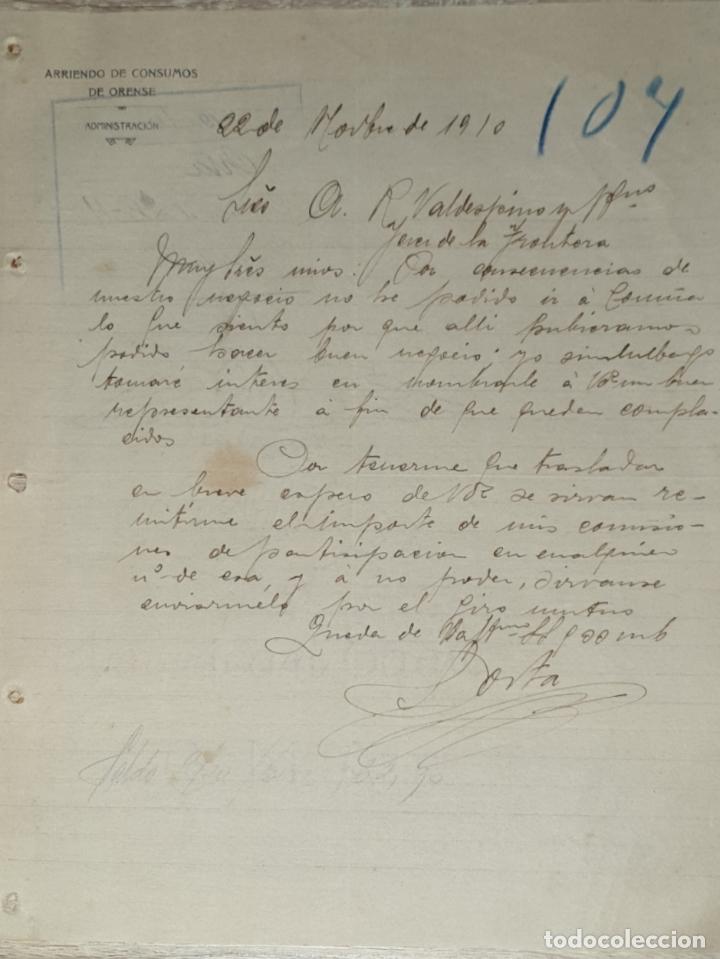 ARRIENDO DE CONSUMOS
DE ORENSE
ADMINISTRACIÓN
107
22 de Novbre de 1910
Sres A. R. Valdespino y Hno
Jerez de la Frontera
Muy Sres mios: Por consecuencias de
nuestro negocio no he podido ir á Coruña
lo que siento por que alli hubieramos
podido hacer buen negocio; yo sin embargo
tomaré interes en nombrarle á Vds un buen
representante á fin de que queden compla-
cidos
Por tenerme que trasladar
en breve espero de Vds se sirvan re-
mitirme el importe de mis comisio-
nes de partisipacion en cualquier
nº de esa, y á no poder, sirvanse
enviarmelo por el Giro mutuo
Queda de Vds
Dorta
Saldo
todocoleccion.net